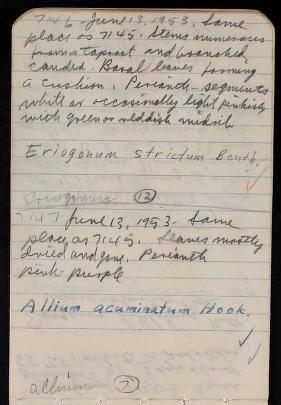 746 - June 13, 1953. Same
place as 7145. Stems numerous
from a taproot and branched
caudex. Basal leaves forming
a cushion. Perianth segments
white or occasionally light pinkish
with green or reddish midrib
Eriogonum strictum Benth.
Eriogonum (12)
7147 June 13, 1953 - Same
place as 7145. Leaves mostly
dried and gone. Perianth
pink-purple
Allium acuminatum Hook.
allium (7)